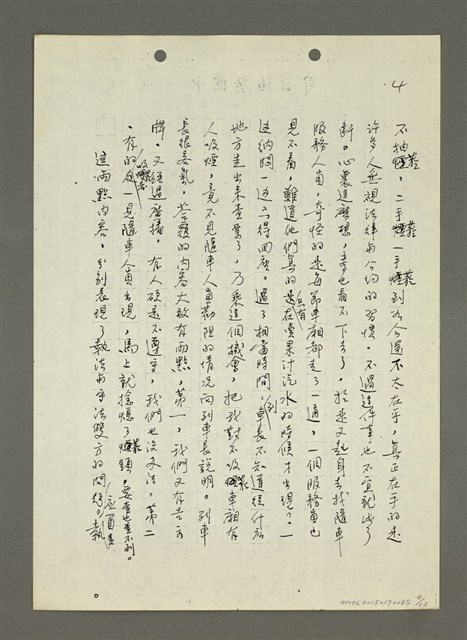 4
不抽菸，二手菸一手菸到如今還不太在乎，真正在乎的是
許多人無視法律與公約的習慣。不過這件事也不宜就此了
斷。心裏這麼想，書也看不下去了，於是又起身去找隨車
服務人員，奇怪的是每節車廂都走了一遍，一個服務員也
見不着，難道他們真的是只有在賣果汁汽水的時候才出現？一
邊納悶一邊只得回座。過了相當時間，列車長不知道從什麼
地方走出來查票了，乃乘這個機會，把我對不吸菸車廂有
人吸煙，竟不見隨車人員勸阻的情況向列車長說明。列車
長很客氣，答覆的內容大致有兩點，第一，我們又有告示
牌，又經過廣播，有人硬是不遵守，我們也沒办法，第二
，有的吸煙者一見隨車人員出現，馬上就捻熄了菸頭，要查也查不到。
這兩點內容，分別表現了執法與守法雙方的問題。執
NMTL20150170085 4/12